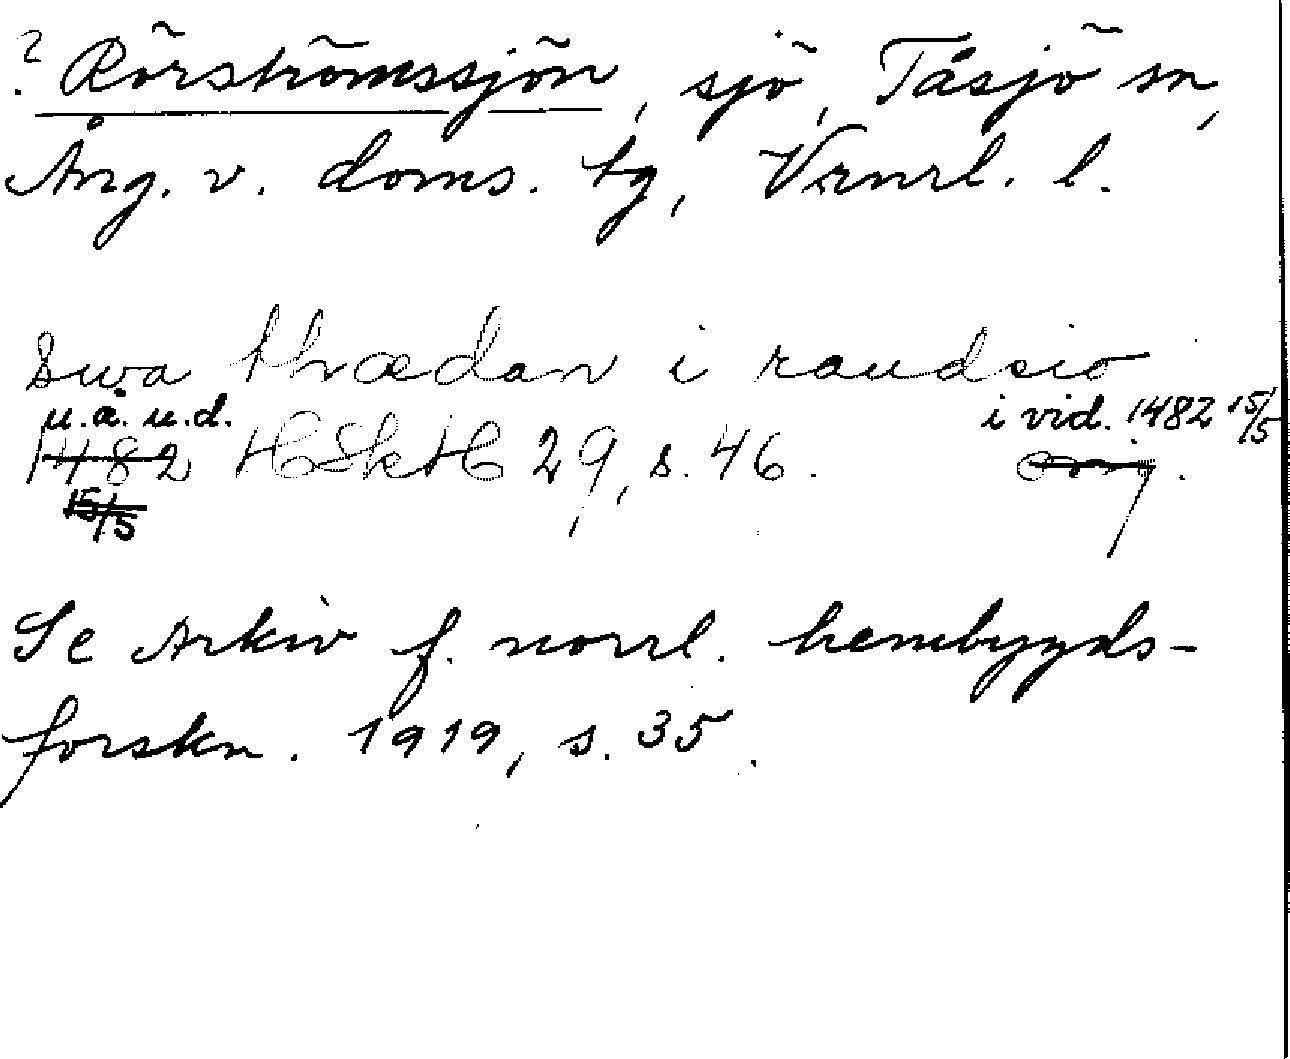 ? Rörströmssjön, sjö, Tåsjö sn,
Ång. v. doms. tg, Vrnrl. l.
Swa thrædan i raudsio
u.å. u.d. i vid. 1482 15/5
1482 HSkH 29, s. 46. orig.
15/5
Se Arkiv f. norrl. hembygds-
forskn. 1919, s. 35.